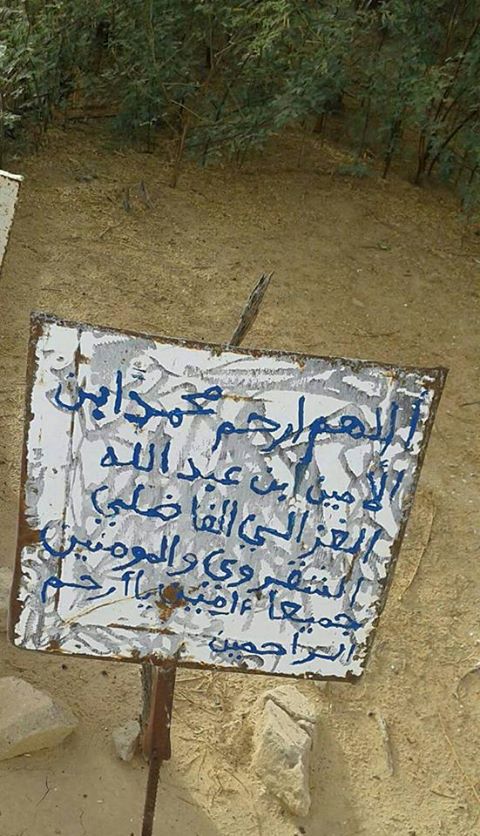 اللهم ارحم محمد ابن
الأمين ابن عبد الله
الغزالي الفاضلي
الشقروي والمومنين
جميعا ءامين ياأرحم
الراحمين